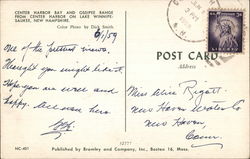 CENTER HARBOR BAY AND OSSIPEE RANGE
FROM CENTER HARBOR ON LAKE WINNIPE-
SAUKEE, NEW HAMPSHIRE
Color Photo by Dick Smith
6/1/59
One of the prettiest views.
Thought you might like it.
Hope you are well and
happy. All ok here
POST CARD
Address
LIBERTY
Miss Alice
New Haven Water Co
New Haven
Conn.
NC-401
Published by Bromley and Company, Inc., Boston 16, Mass.